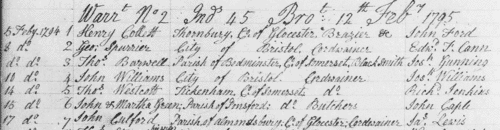 Warr.t No 2 Ind.s 45 Bro.t 12th Feb.y 1795
5 Feby. 1794 1 Henry Collett Thornbury, C.o of Glocester Brazier &c John Ford
8 d.o 2 Geo.e Spurrier City of Bristol Cordwainer Edw.d T. Cann
d.o d.o 3 Tho.s Barwell Parish of Bedminster, C.o of Somerset, Black Smith Jos.h Gunning
10 d.o 4 John Williams City of Bristol Cordwainer Jos.h Williams
14 d.o 5 Tho.s Westcott Tickenham, C.o of Somerset d.o Rich.d Jenkins
16 d.o 6 John & Martha Green, Parish of d.o Butchers John Caple
17 d.o 7 John Parish of Almondsbury, C.o of Glocester, Cordwainer Ja.s Lewis